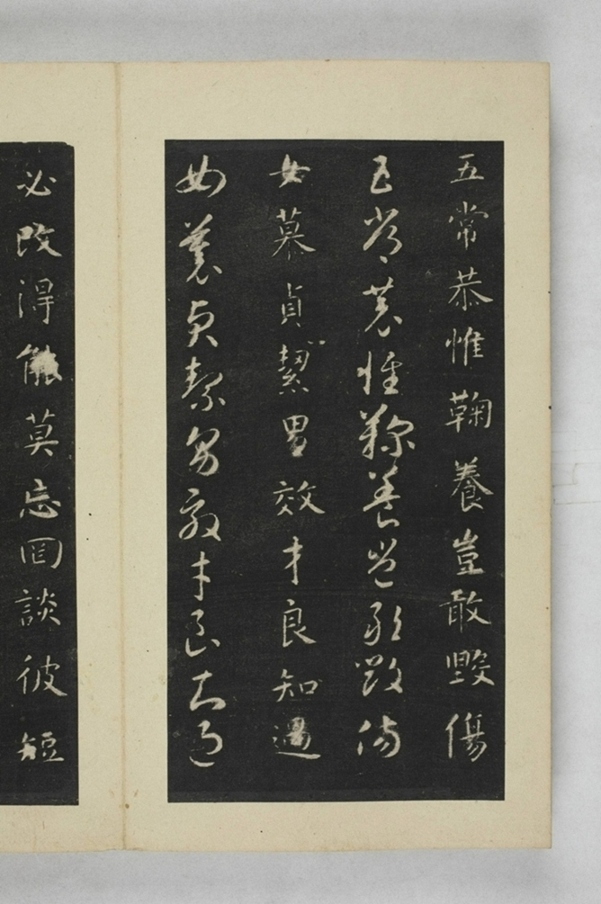 五常恭惟鞠養豈敢毀傷
五常恭惟鞠養豈敢毀傷
女慕貞絜男效才良知過
女慕貞絜男效才良知過
必改得能莫忘罔談彼短